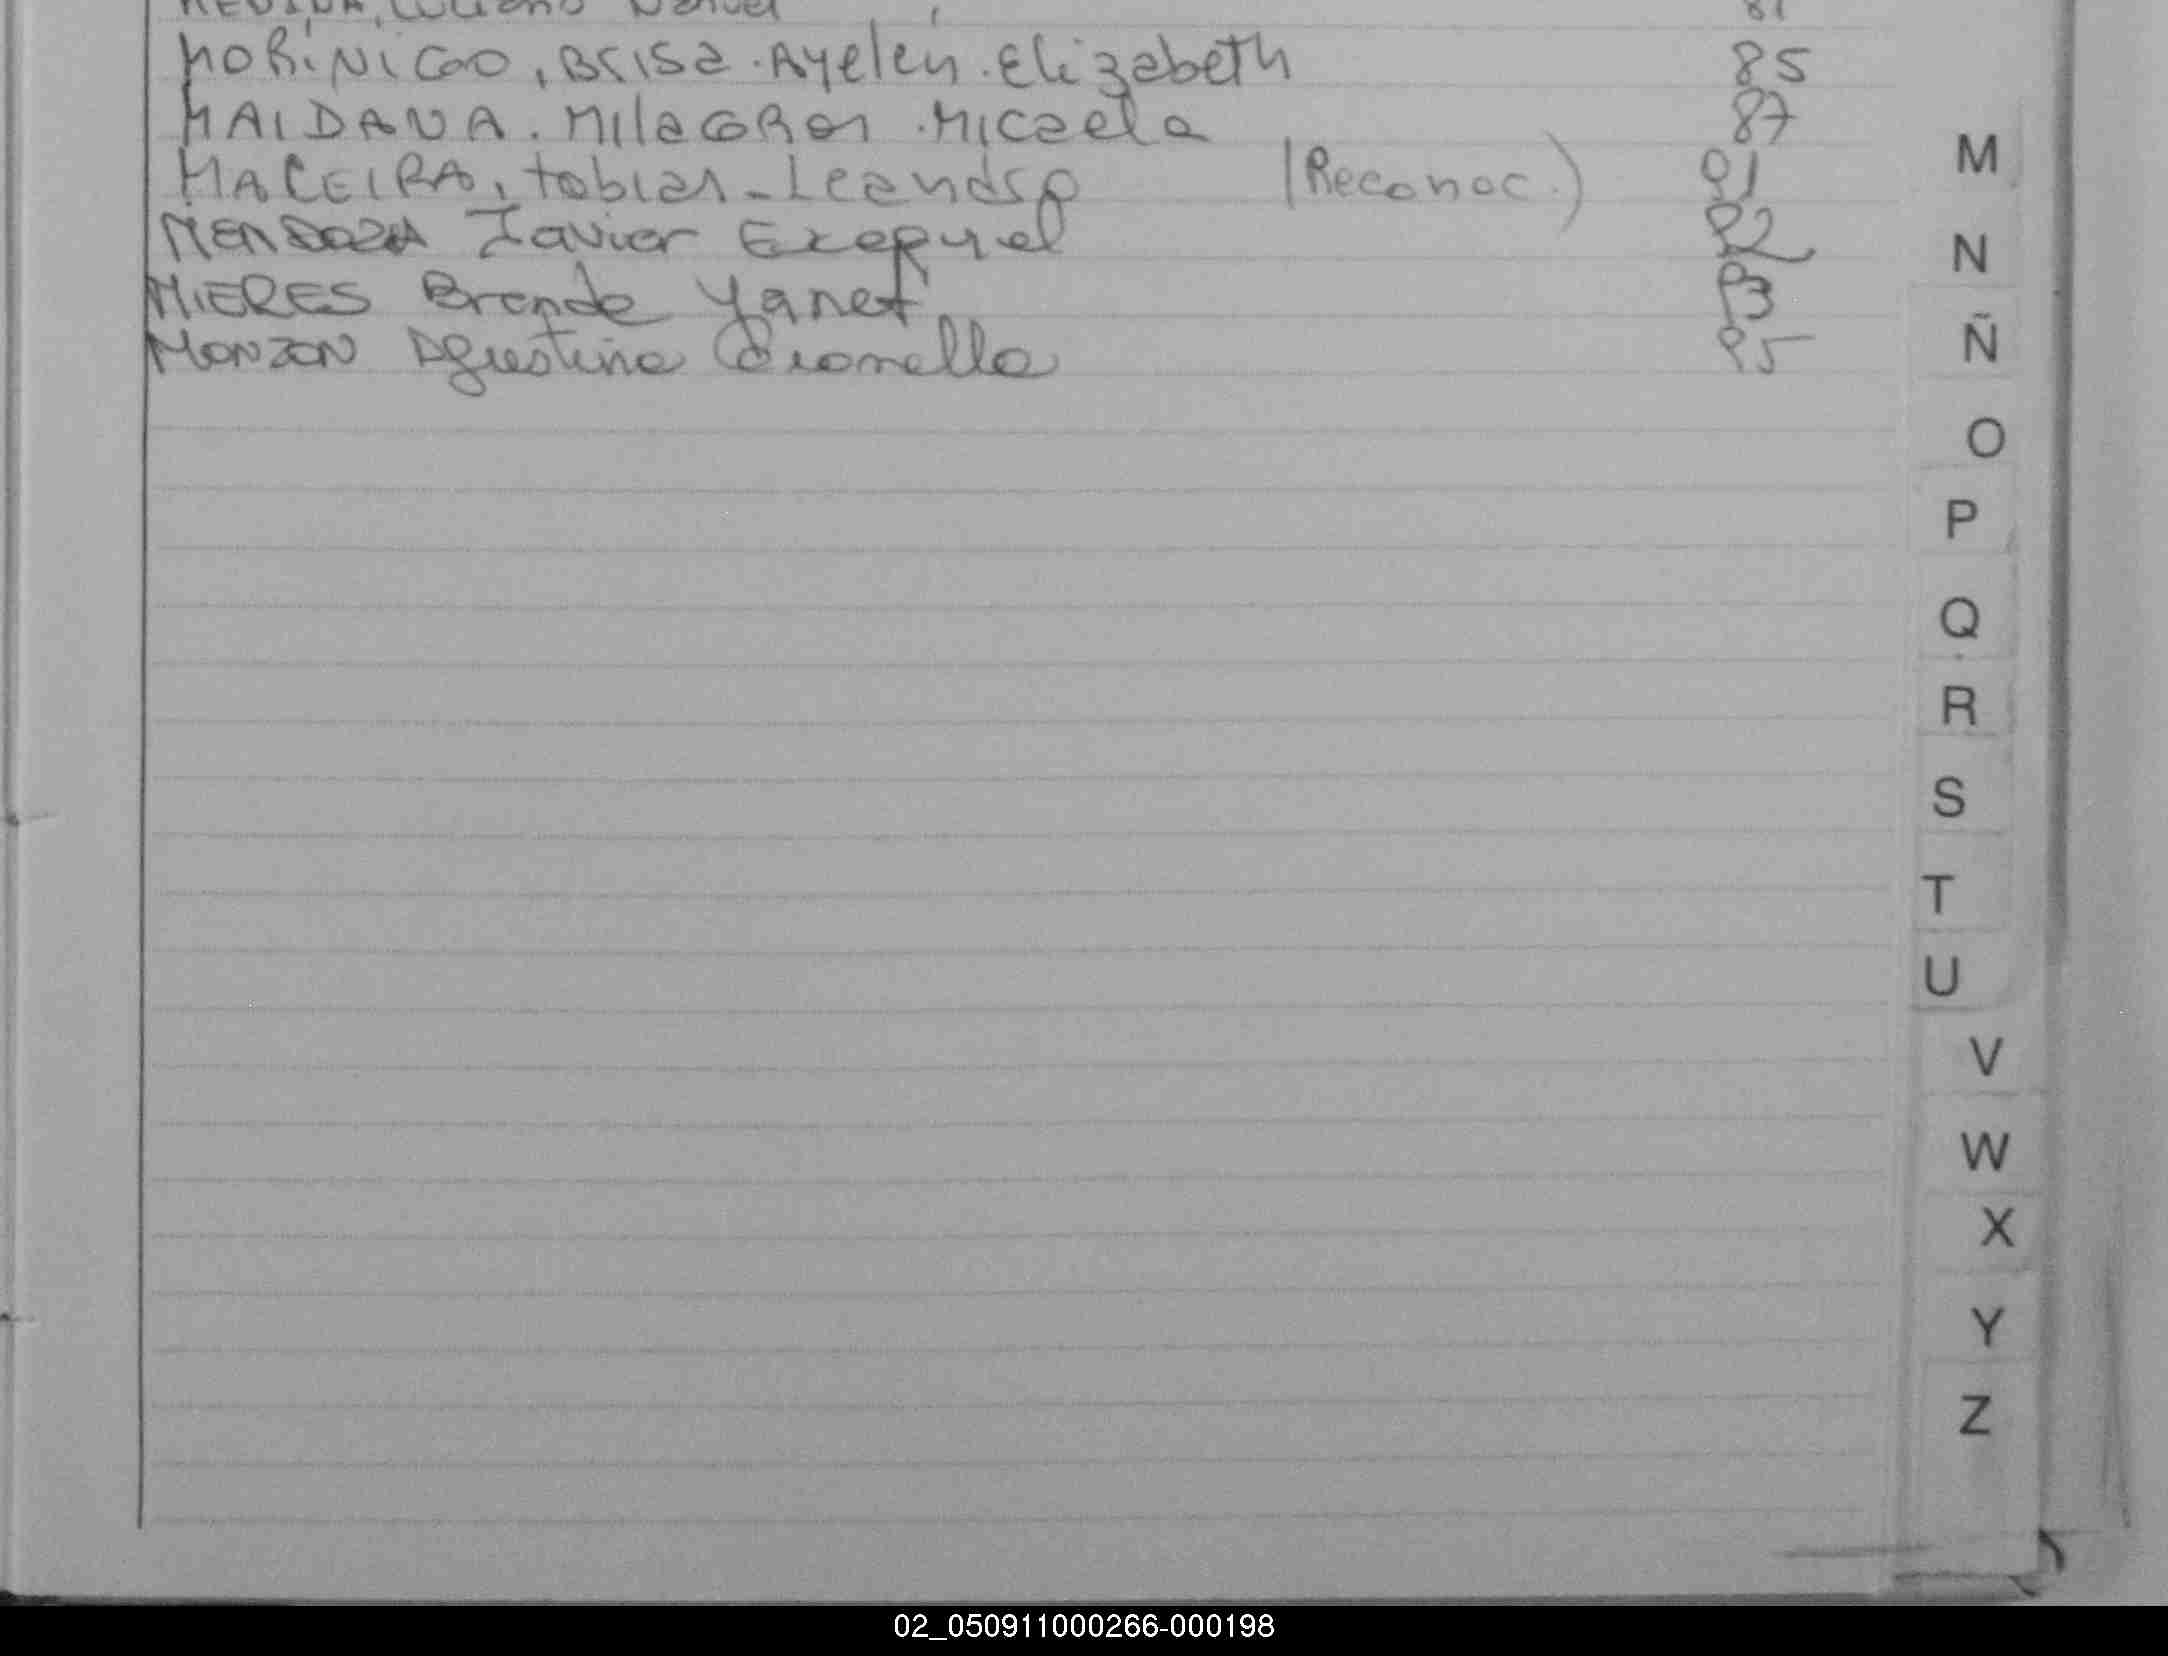 MEDINA, Luciano Nahuel 81
MORÍNIGO, Brisa. Ayelén. Elizabeth 85
MAIDANA. Milagros. Micaela 87
MACEIRA, tobias - Leandro (Reconoc.) 91
MENDOZA Javier Exequiel 92
MIERES Brenda Yanet 93
MONZON Agustina 95
M
N
Ñ
O
P
Q
R
S
T
U
V
W
X
Y
Z
02_050911000266-000198